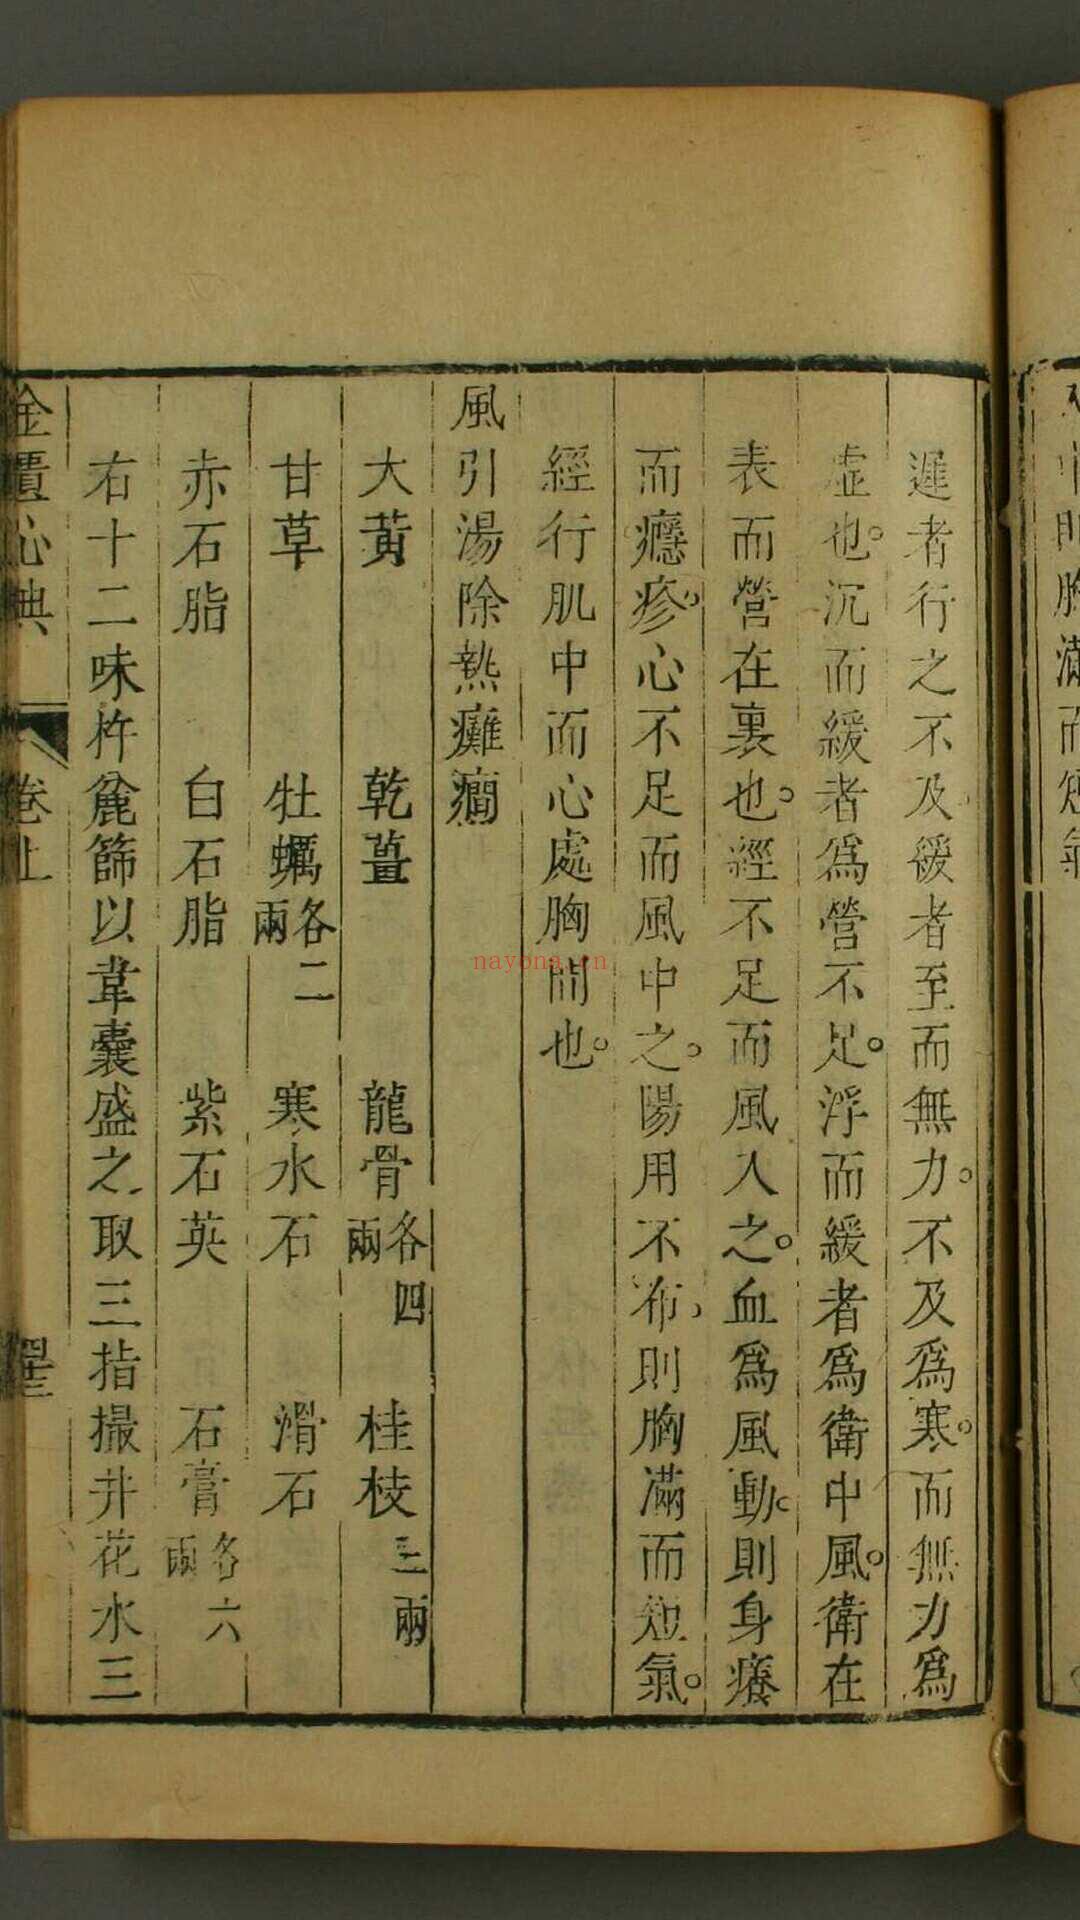 中則胸滿而短氣
遲者行之不及緩者至而無力不及爲寒而無力爲
虛也沉而緩者爲營不足浮而緩者爲衛中風衛在
表而營在裏也經不足而風入之血爲風動則身癢
而癮疹心不足而風中之陽用不布則胸滿而短氣
經行肌中而心處胸間也
風引湯除熱癱癎
大黃 乾薑 龍骨各四兩 桂枝三兩
甘草 牡蠣各二兩 寒水石 滑石
赤石脂 白石脂 紫石英 石膏各六兩
右十二味杵麄篩以韋囊盛之取三指撮井花水三
金匱心典 卷上
nayona.cn